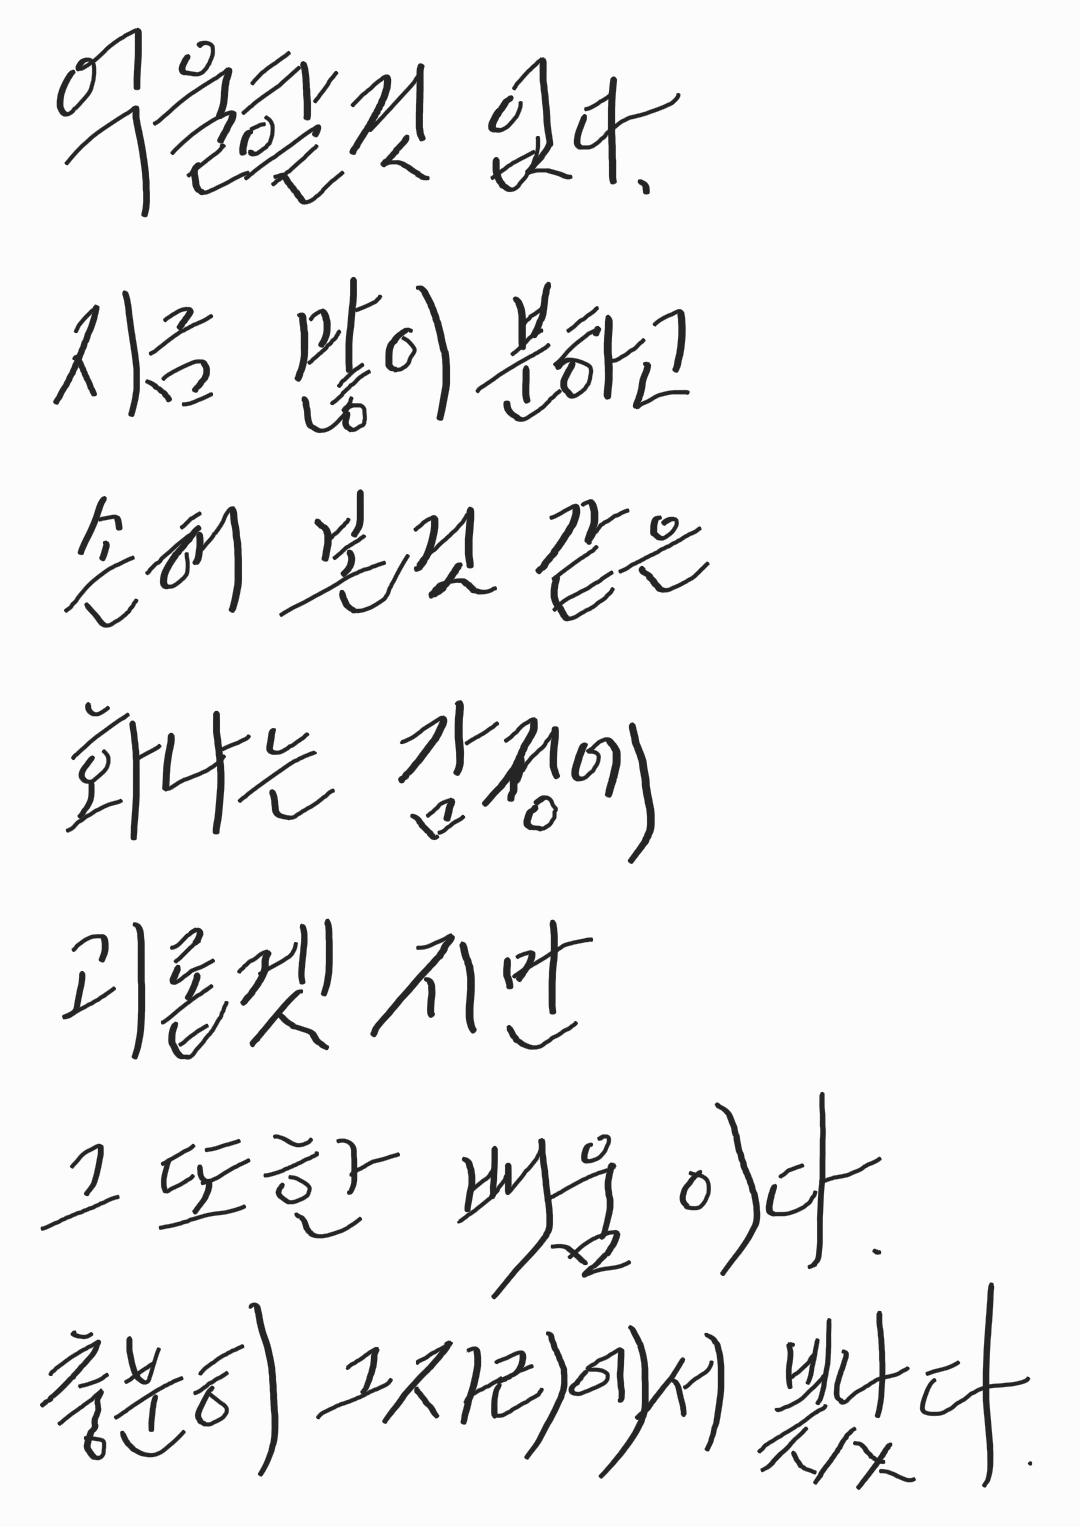 억울할것 없다.
지금 많이 분하고
손허 본것 같은
화나는 감정이
괴롭겟 지만
그 또한 배움 이다.
충분히 그자리에서 빛났다.